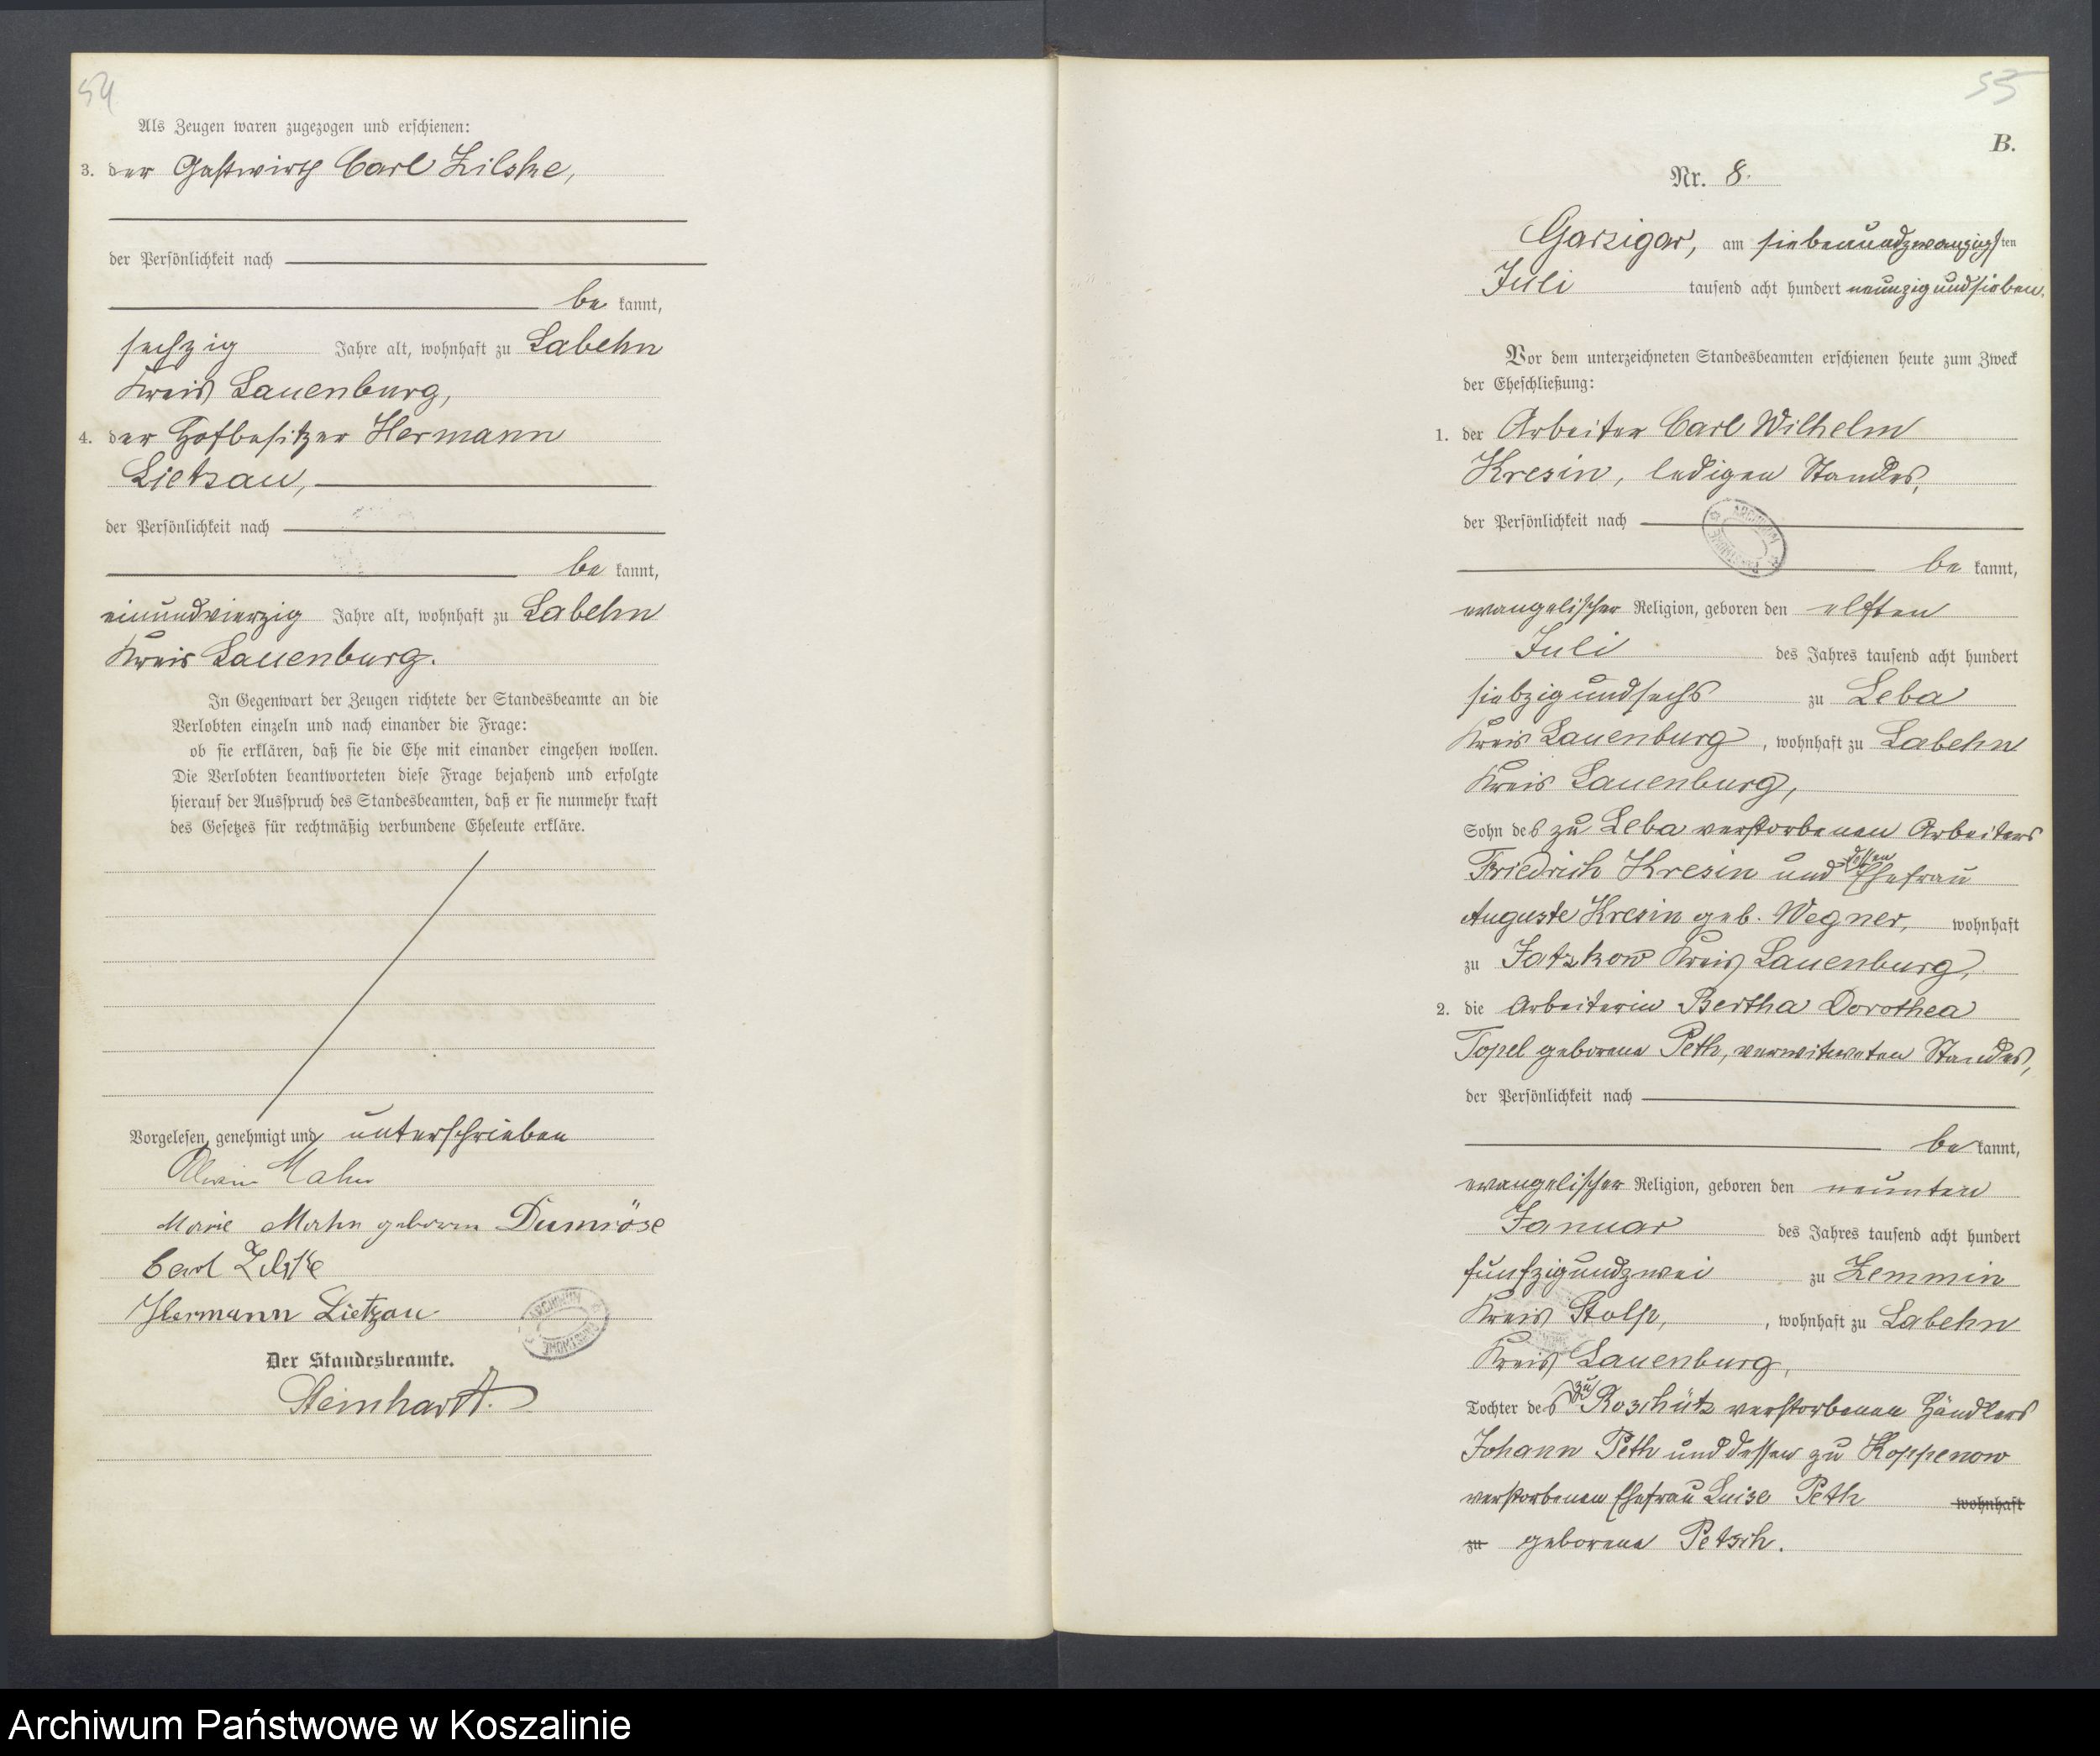 54
Als Zeugen waren zugezogen und erschienen:
3. der Gastwirth Carl Zilske,
der Persönlichkeit nach
be kannt,
sechzig Jahre alt, wohnhaft zu Labehn
Kreis Lauenburg,
4. der Hofbesitzer Hermann
Lietzau,
der Persönlichkeit nach
be kannt,
einundvierzig Jahre alt, wohnhaft zu Labehn
Kreis Lauenburg.
In Gegenwart der Zeugen richtete der Standesbeamte an die
Verlobten einzeln und nach einander die Frage:
ob sie erklären, daß sie die Ehe mit einander eingehen wollen.
Die Verlobten beantworteten diese Frage bejahend und erfolgte
hierauf der Ausspruch des Standesbeamten, daß er sie nunmehr kraft
des Gesetzes für rechtmäßig verbundene Eheleute erkläre.
Vorgelesen, genehmigt und unterschrieben
Mahn
Marie Mahn geborene Dumröse
Carl Zilske
Hermann Lietzau
ARCHIWUM PAŃSTWOWE
Der Standesbeamte.
Steinhardt.
55
B.
Nr. 8.
Garzigar, am siebenundzwanzigsten
Juli tausend acht hundert neunzigundsieben.
Vor dem unterzeichneten Standesbeamten erschienen heute zum Zweck
der Eheschließung:
1. der Arbeiter Carl Wilhelm
Kresin, ledigen Standes,
der Persönlichkeit nach
ARCHIWUM PAŃSTWOWE
be kannt,
evangelischer Religion, geboren den elften
Juli des Jahres tausend acht hundert
siebzigundsechs zu Leba
Kreis Lauenburg, wohnhaft zu Labehn
Kreis Lauenburg,
Sohn des zu Leba verstorbenen Arbeiters
Friedrich Kresin und dessen Ehefrau
Auguste Kresin geb. Wegner, wohnhaft
zu Jatzkow Kreis Lauenburg,
2. die Arbeiterin Bertha Dorothea
Topel geborene Peth, verwitweten Standes,
der Persönlichkeit nach
be kannt,
evangelischer Religion, geboren den neunten
Januar des Jahres tausend acht hundert
fünfzigundzwei zu Zemmin
Kreis Stolp, , wohnhaft zu Labehn
Kreis Lauenburg,
Tochter des zu Roschütz verstorbenen Händlers
Johann Peth und dessen zu Koppenow
verstorbenen Ehefrau Luise Peth wohnhaft
zu geborene Petsch.
Archiwum Państwowe w Koszalinie